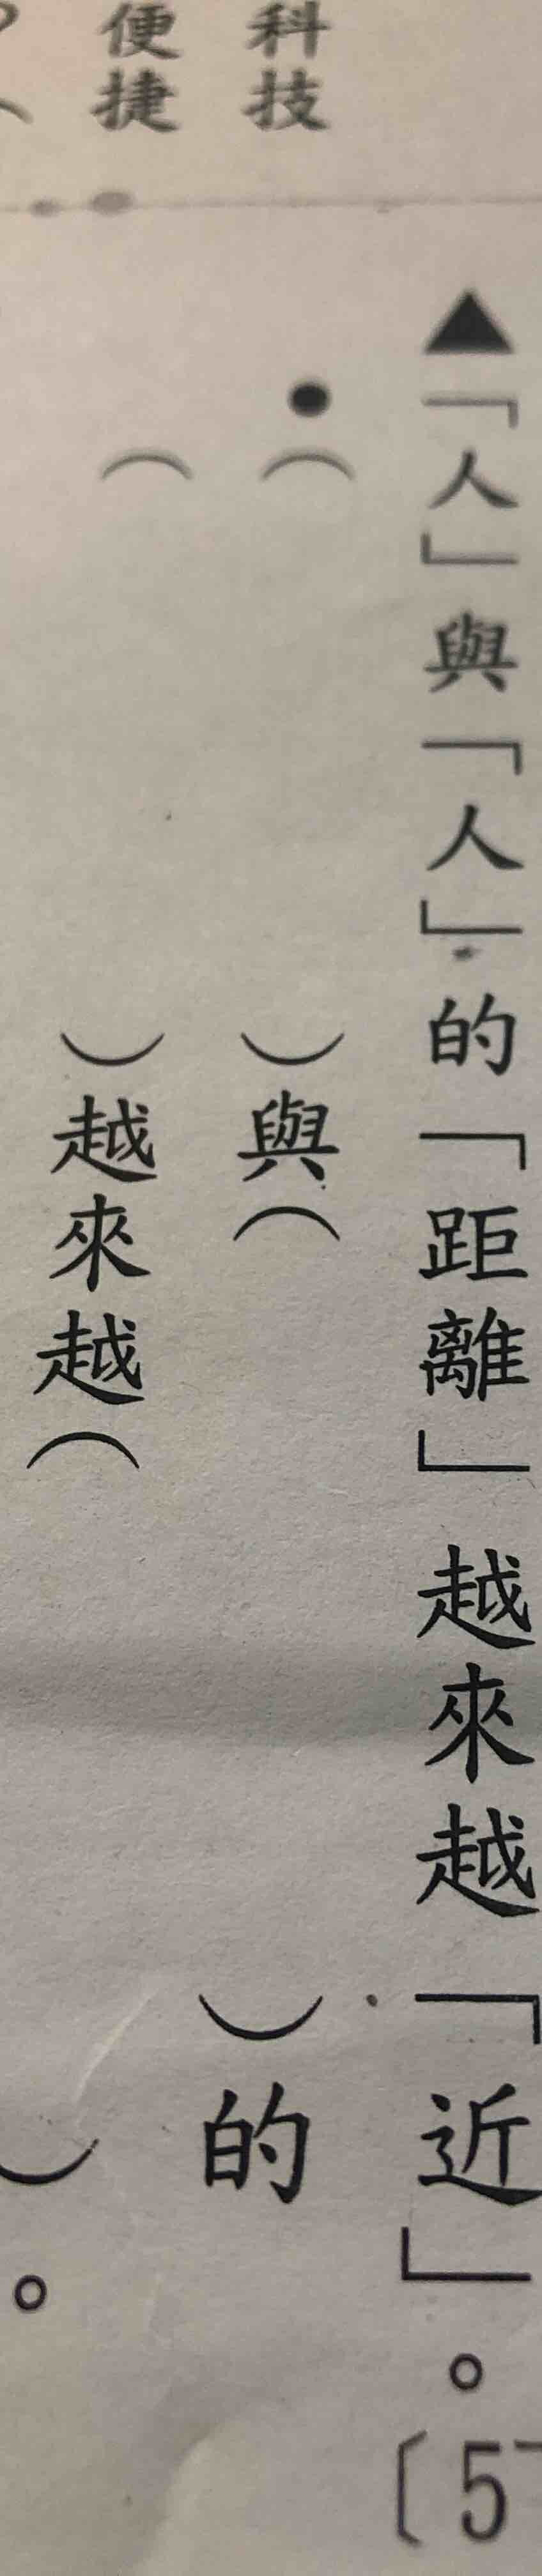 科技
便捷
▲「人」與「人」的「距離」越來越「近」。〔5
•（　）與（　）的
（　）越來越（　）。